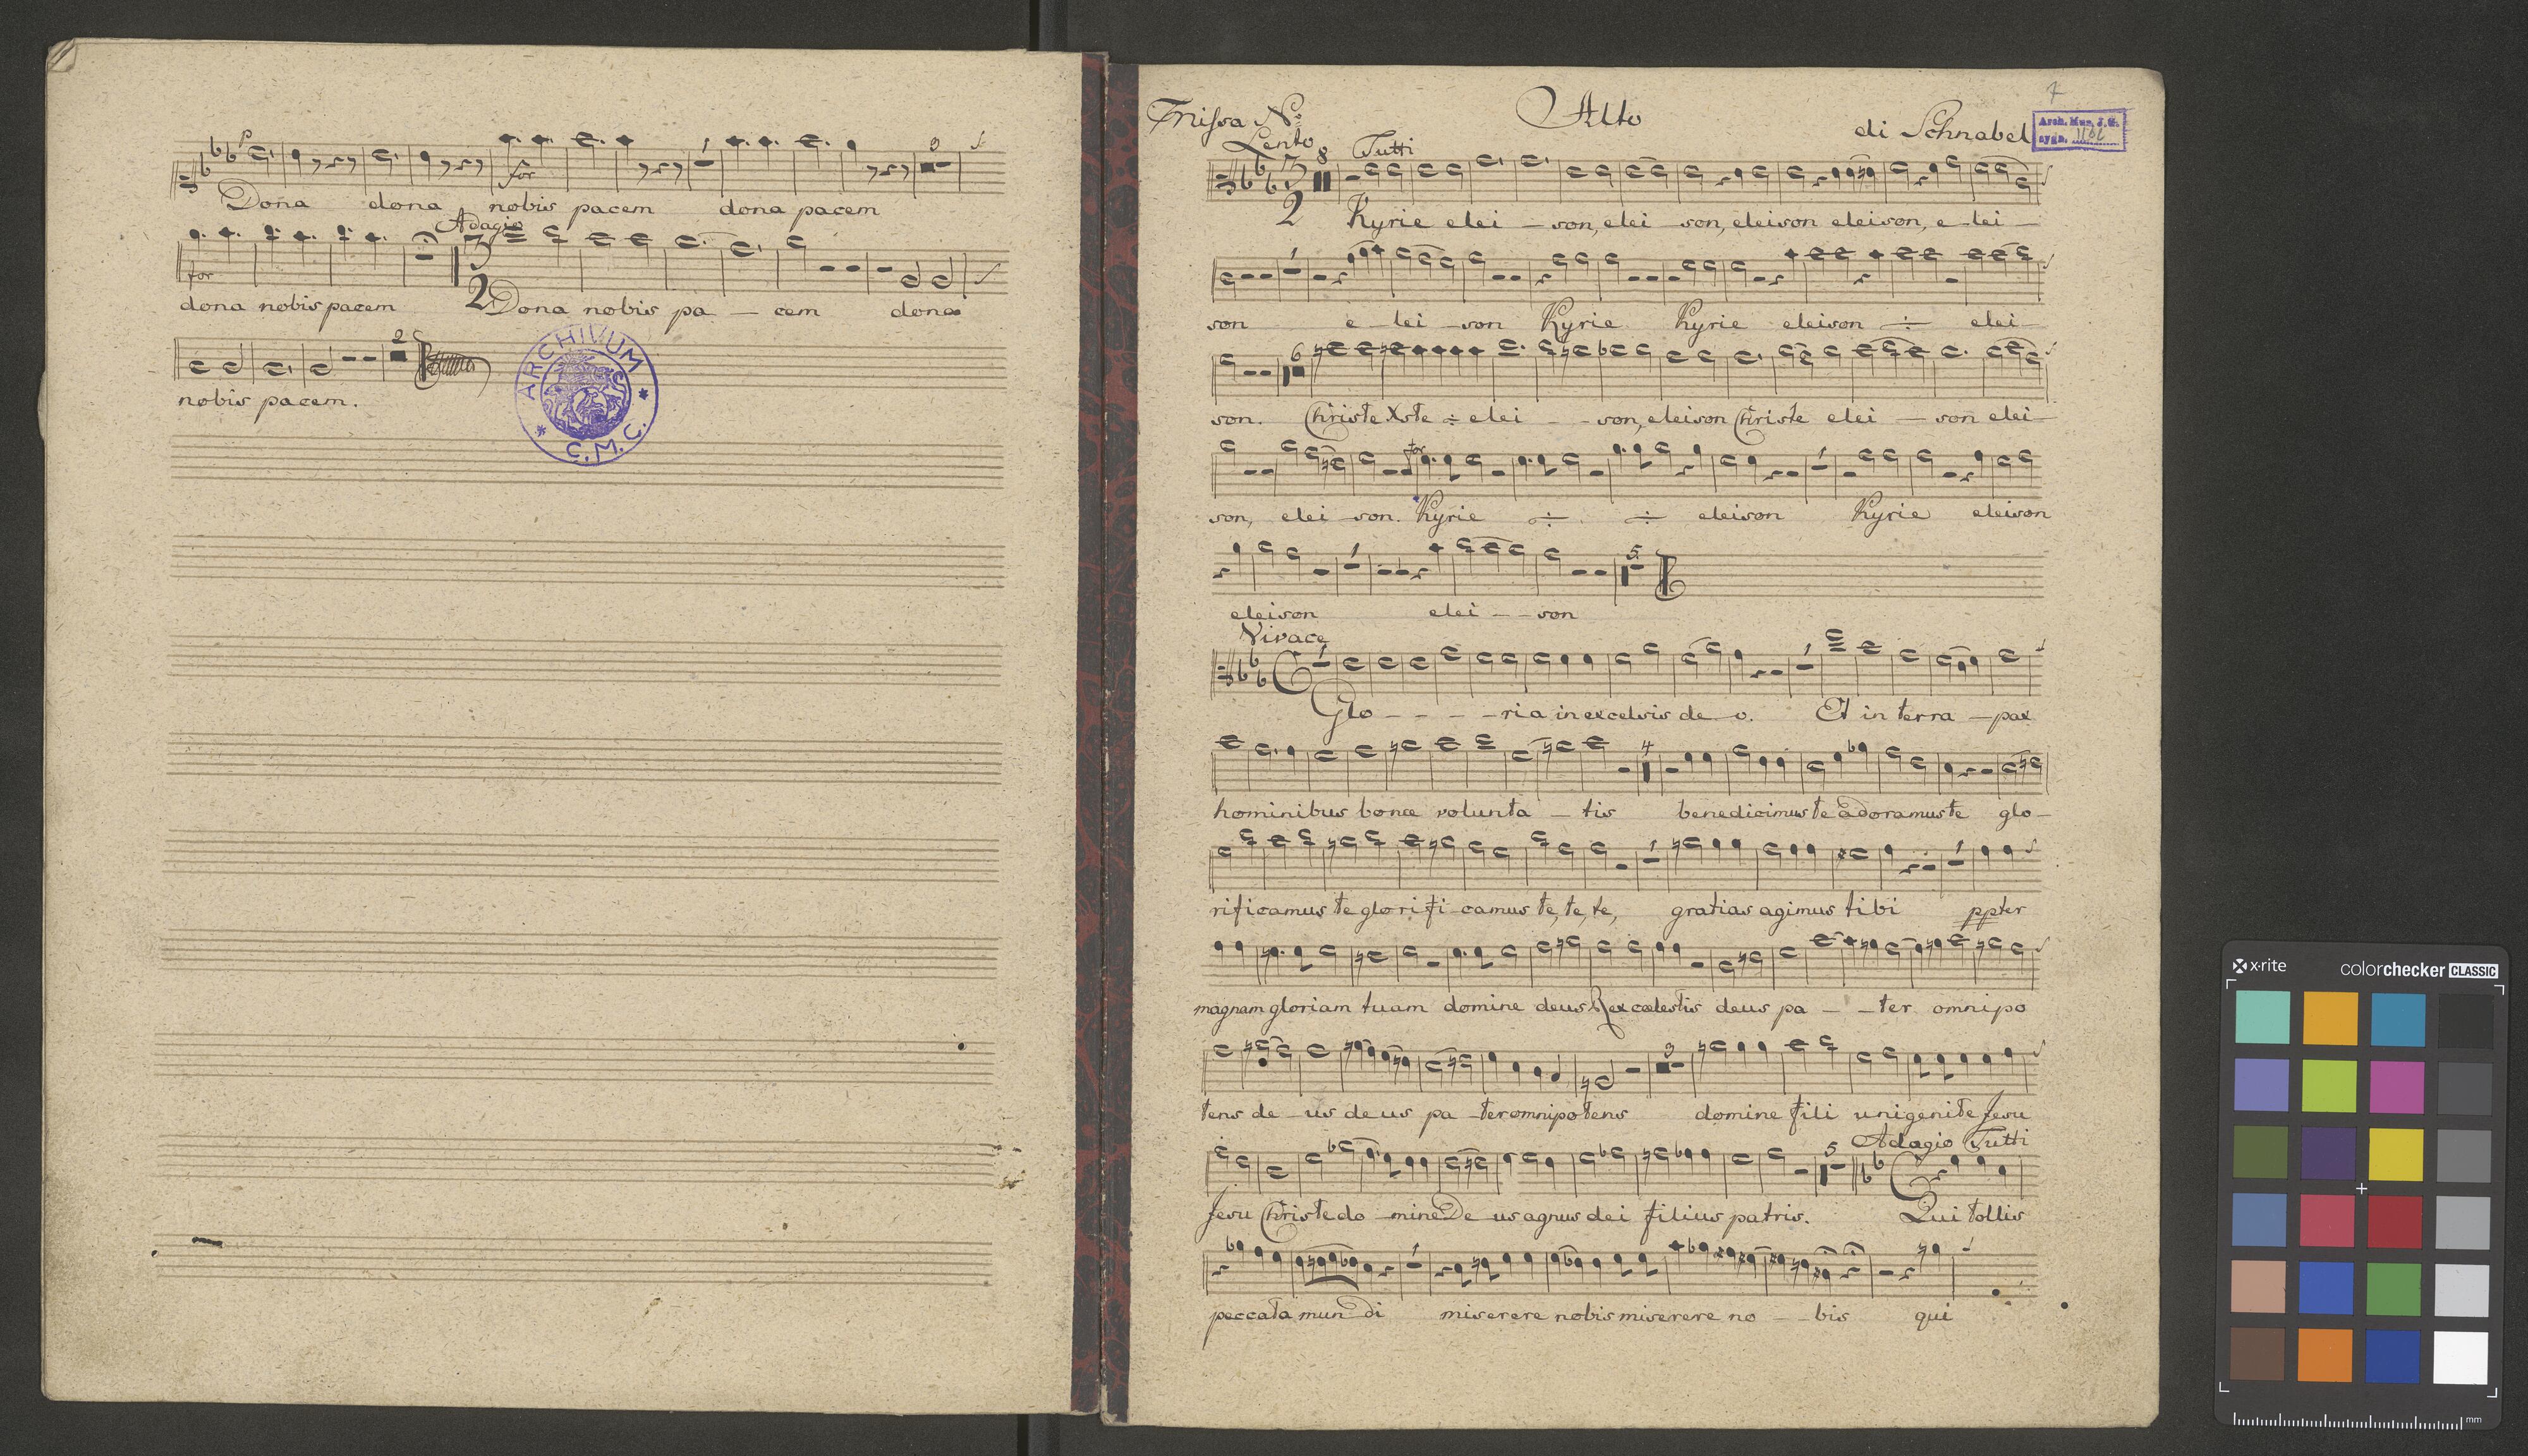 p
for
Dona dona nobis pacem dona pacem
Adagio
for
dona nobis pacem Dona nobis pa - cem dona
2
nobis pacem.
ARCHIVUM * C.M.C. *
7
Missa No. Alto di Schnabel
Arch. Mus. J. G.
sygn.
Lento 8 Tutti
3 2
Kyrie elei - son, elei - son, eleison eleison, e - lei -
son e - lei - son Kyrie Kyrie eleison ÷ elei -
6
son. Christe Xste ÷ elei - - son, eleison Christe elei - son elei -
for
son, elei - son. Kyrie ÷ ÷ eleison Kyrie eleison
5
eleison elei - - son
Vivace
Glo - - - - ria in excelsis de - o. Et in terra - pax
4
hominibus bonæ volunta - tis benedicimus te adoramus te glo -
rificamus te glorifi - camus te, te, te, gratias agimus tibi ppter
magnam gloriam tuam domine deus Rex cœlestis deus pa - - ter omnipo
tens de - us de us pa - ter omnipotens domine fili unigenite Jesu
5 Adagio Tutti
Jesu Christe do - mine De us agnus dei filius patris. Qui tollis
peccata mun di miserere nobis miserere no - - bis qui
x-rite colorchecker CLASSIC
mm